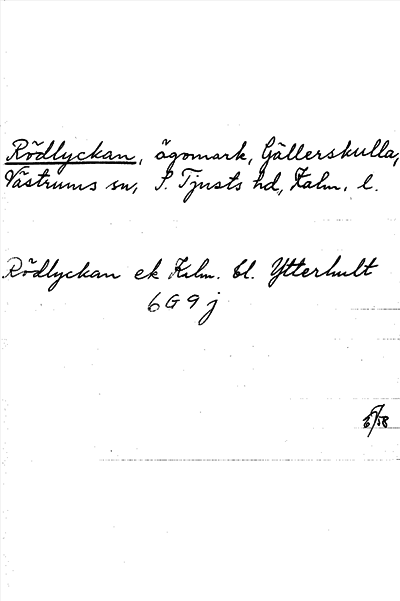 Rödlyckan, ägomark, Gällerskulla,
Västrums sn, S. Tjusts hd, Kalm. l.
Rödlyckan ek Kilm. bl. Ytterhult
6G9j